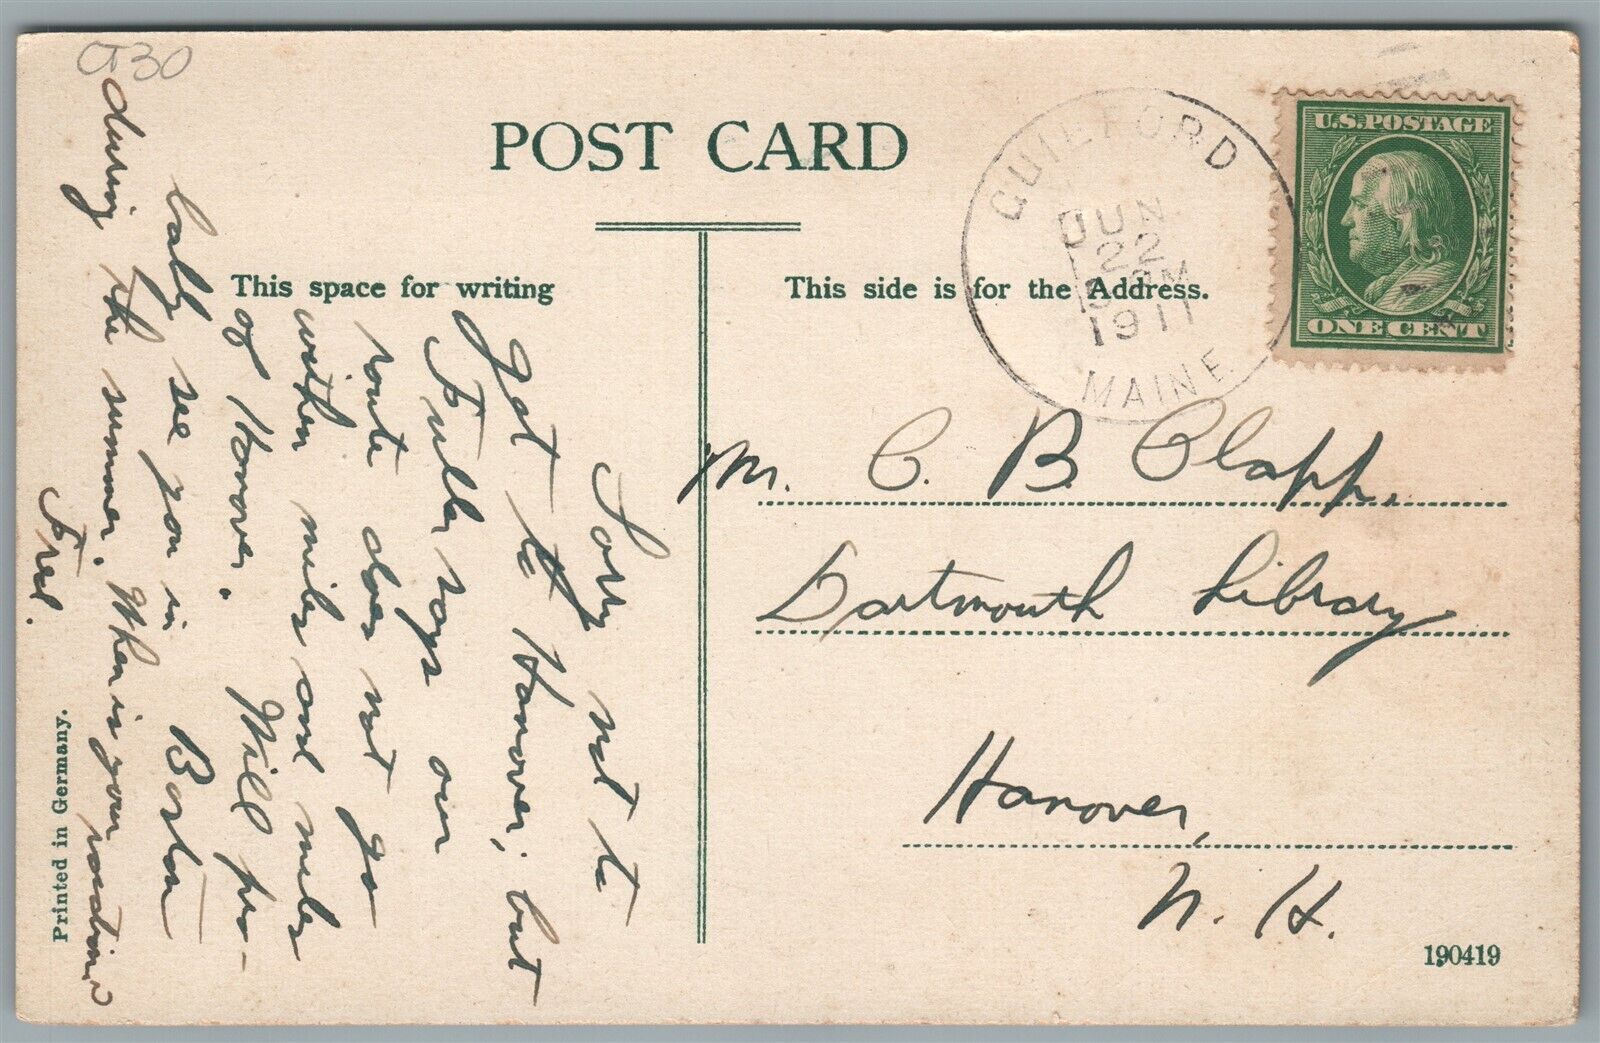 O30
POST CARD
This space for writing
This side is for the Address.
GUILFORD
JUN
22
1911
MAINE
U.S. POSTAGE
ONE CENT
Sorry not to
got to Hanover, but
Fuller says our
route does not go
within miles and miles
of Hanover. Will pro-
bably see you in Boston
during the summer. When is your vacation?
Fred.
Mr. C. B. Clapp,
Dartmouth Library
Hanover,
N. H.
Printed in Germany.
190419